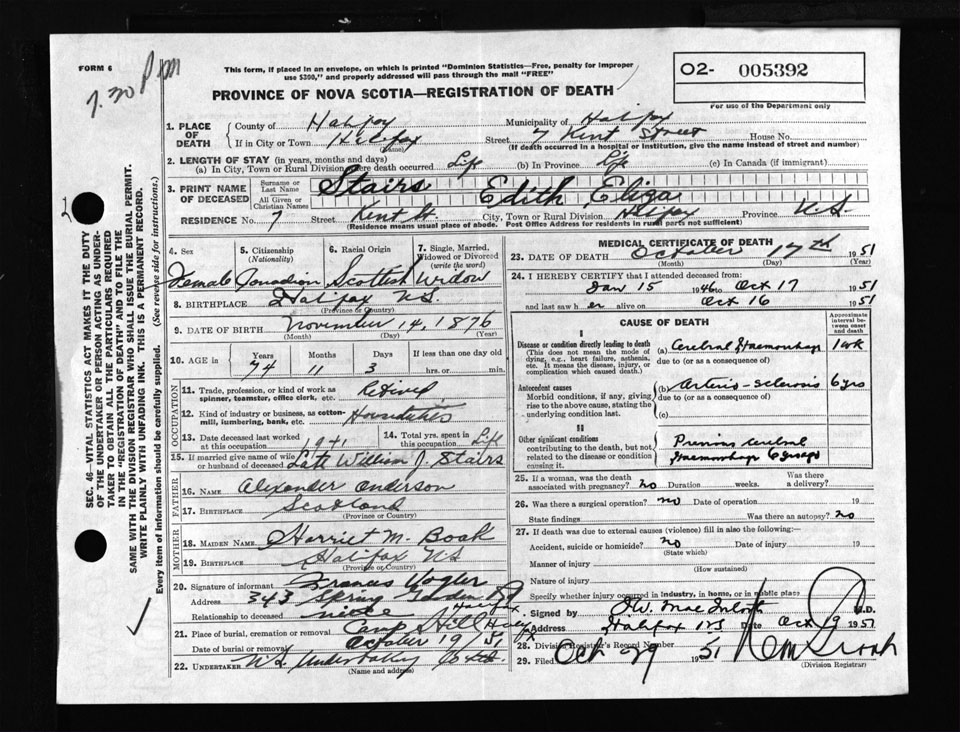 FORM 6
7.30 pm
This form, if placed in an envelope, on which is printed "Dominion Statistics—Free, penalty for improper
use $300," and properly addressed will pass through the mail "FREE"
PROVINCE OF NOVA SCOTIA—REGISTRATION OF DEATH
O2- 005392
For use of the Department only
1. PLACE OF DEATH
County of Halifax Municipality of Halifax
If in City or Town Halifax (Name) Street 7 Kent Street House No.
(If death occurred in a hospital or institution, give the name instead of street and number)
2. LENGTH OF STAY (in years, months and days)
(a) In City, Town or Rural Division where death occurred Life (b) In Province Life (c) In Canada (if immigrant)
3. PRINT NAME OF DECEASED
Surname or Last Name Stairs
All Given or Christian Names Edith Eliza
RESIDENCE No. 7 Street Kent St. City, Town or Rural Division Halifax Province N.S.
(Residence means usual place of abode. Post Office Address for residents in rural parts not sufficient)
4. Sex Female
5. Citizenship (Nationality) Canadian
6. Racial Origin Scottish
7. Single, Married, Widowed or Divorced (write the word) Widow
8. BIRTHPLACE Halifax N.S.
(Province or Country)
9. DATE OF BIRTH November 14, 1876
(Month) (Day) (Year)
10. AGE in Years 74 Months 11 Days 3 If less than one day old hrs. or min.
OCCUPATION
11. Trade, profession, or kind of work as spinner, teamster, office clerk, etc. Retired
12. Kind of industry or business, as cotton-mill, lumbering, bank, etc. Housduties
13. Date deceased last worked at this occupation 1941
14. Total yrs. spent in this occupation Life
15. If married give name of wife or husband of deceased Late William J. Stairs
FATHER
16. NAME Alexander Anderson
17. BIRTHPLACE Scotland
(Province or Country)
MOTHER
18. MAIDEN NAME Harriet M. Boak
19. BIRTHPLACE Halifax NS
(Province or Country)
20. Signature of informant Frances Vogler
Address 343 Spring Garden Rd Halifax
Relationship to deceased niece
21. Place of burial, cremation or removal Camp Hill Halifax
Date of burial or removal October 19 1951
22. UNDERTAKER N.S. Undertaking Co Ltd.
(Name and address)
MEDICAL CERTIFICATE OF DEATH
23. DATE OF DEATH October 17th 1951
(Month) (Day) (Year)
24. I HEREBY CERTIFY that I attended deceased from:
Jan 15 1946 to Oct 17 1951
and last saw her alive on Oct 16 1951
CAUSE OF DEATH
Approximate interval between onset and death
I
Disease or condition directly leading to death
(This does not mean the mode of dying, e.g., heart failure, asthenia, etc. It means the disease, injury, or complication which caused death.)
(a) Cerebral Haemorrhage 1 wk
due to (or as a consequence of)
Antecedent causes
Morbid conditions, if any, giving rise to the above cause, stating the underlying condition last.
(b) arterio-sclerosis 6 yrs
due to (or as a consequence of)
(c)
II
Other significant conditions
contributing to the death, but not related to the disease or condition causing it.
Previous Cerebral
Haemorrhage 6 yrs ago
25. If a woman, was the death associated with pregnancy? no Duration weeks. Was there a delivery?
26. Was there a surgical operation? no Date of operation 19
State findings Was there an autopsy? no
27. If death was due to external causes (violence) fill in also the following:—
Accident, suicide or homicide? no Date of injury 19
(State which)
Manner of injury
(How sustained)
Nature of injury
Specify whether injury occurred in industry, in home, or in public place
Signed by M.D.
Address Halifax NS Date Oct 19 1951
28. Division Registrar's Record Number
29. Filed Oct 29 1951
(Division Registrar)
SEC. 46—VITAL STATISTICS ACT MAKES IT THE DUTY
OF THE UNDERTAKER OR PERSON ACTING AS UNDER-
TAKER TO OBTAIN ALL THE PARTICULARS REQUIRED
IN THE "REGISTRATION OF DEATH" AND TO FILE THE
SAME WITH THE DIVISION REGISTRAR WHO SHALL ISSUE THE BURIAL PERMIT.
WRITE PLAINLY WITH UNFADING INK. THIS IS A PERMANENT RECORD.
Every item of information should be carefully supplied. (See reverse side for instructions.)